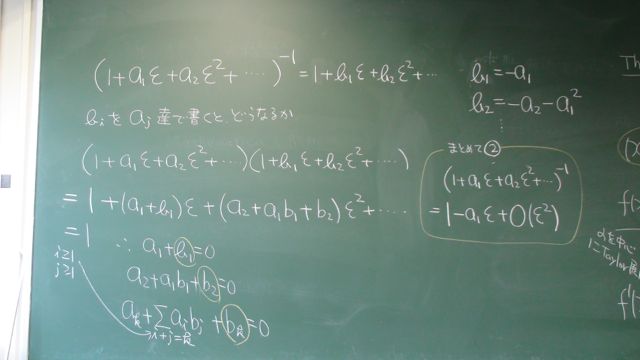 (1+a₁ε+a₂ε²+‥‥)⁻¹=1+b₁ε+b₂ε²+‥
b₁=-a₁
b₂=-a₂-a₁²
⋮
bᵢをaⱼ達で書くと、どうなるか
(1+a₁ε+a₂ε²+‥‥)(1+b₁ε+b₂ε²+‥‥)
=1+(a₁+b₁)ε+(a₂+a₁b₁+b₂)ε²+‥‥
=1 ∴ a₁+b₁=0
a₂+a₁b₁+b₂=0
i≥1
j≥1
aₖ+∑aᵢbⱼ+bₖ=0
i+j=k
まとめて②
(1+a₁ε+a₂ε²+‥)⁻¹
=1-a₁ε+O(ε²)
Th
(x
f(
αを中心
にTaylor展
f'(